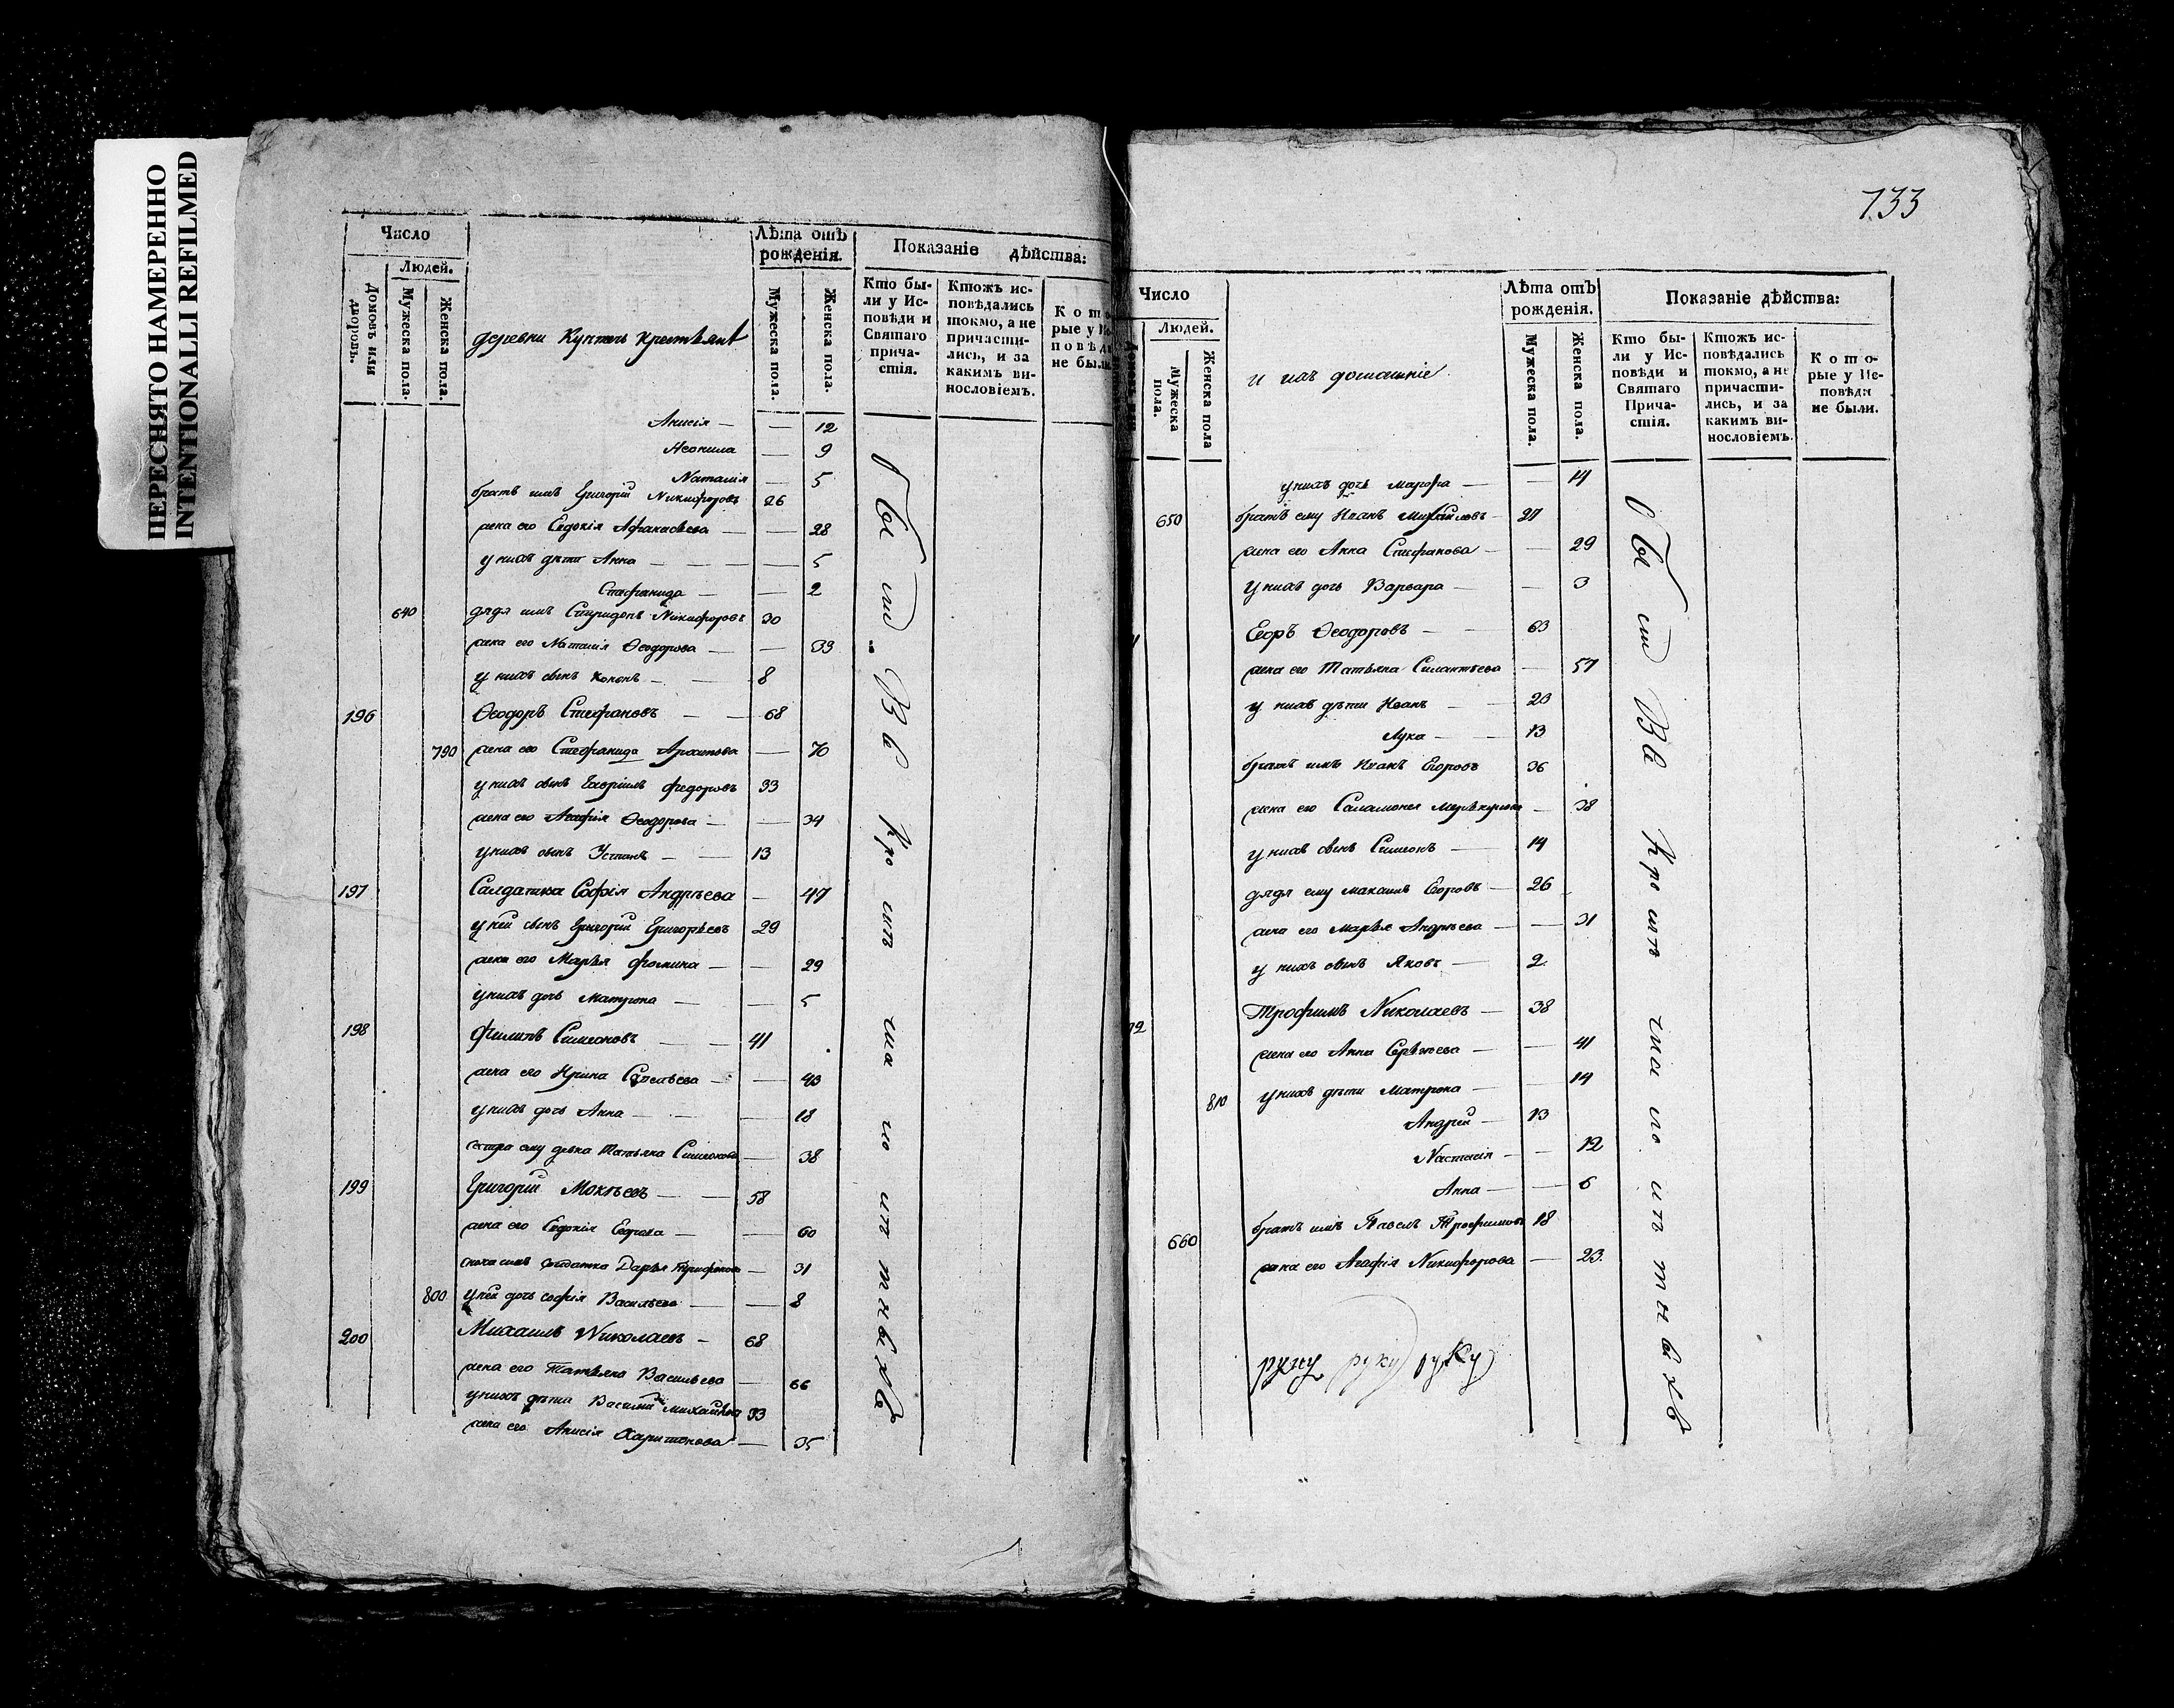 ПЕРЕСНЯТО НАМЕРЕННО
INTENTIONALLI REFILMED
Число
Людей.
Домовъ или дворовъ.
Мужеска пола.
Женска пола.
деревни крестьянъ
Лѣта отъ рожденія.
Мужеска пола.
Женска пола.
Показаніе дѣйства:
Кто бы-
ли у Ис-
повѣди и
Святаго
прича-
стія.
Ктожъ ис-
повѣдались
токмо, а не
причасти-
лись, и за
какимъ ви-
нословіемъ.
Кото
рые у Ис
повѣд
не были
Анисія — — 12
Неонила — 9
Наталія — 5
братъ имъ Григорій Никифоровъ 26
жена его Евдокія Афанасьева — — 28
у нихъ дѣти Анна — — — 5
Стефанида — — 2
640 дядя имъ Спиридонъ Никифоровъ 30
жена его Наталія Ѳеодорова — — 33
у нихъ сынъ Кононъ — — 8
196 Ѳеодоръ Стефановъ — — 68
790 жена его Стефанида Архипова — 70
у нихъ сынъ Гавріилъ Федоровъ 33
жена его Агафія Ѳеодорова — — 34
у нихъ сынъ Устинъ — — 13
197 Салдатка Софія Андрѣева — 47
у ней сынъ Григорій Григорьевъ 29
жена его Марья Фомина — — 29
у нихъ дочь Матрона — — 5
198 Филипъ Симеоновъ — — 41
жена его Ирина Савельева — — 43
у нихъ дочь Анна — — — 18
сестра ему девка Татьяна Симеонова — 38
199 Григорій Мокѣевъ — — 58
жена его Евдокія — — 60
Дарья Трифонова — 31
800 у ней дочь Софія Васильева — — 8
200 Михаилъ Николаевъ — 68
жена его Татьяна Васильева — 66
у нихъ дѣти Василий Михайловъ 33
жена его Анисія Харитонова — 35
133
Число
Людей.
Мужеска пола.
Женска пола
и ихъ домашніе
Лѣта отъ рожденія.
Мужеска пола.
Женска пола.
Показаніе дѣйства:
Кто бы-
ли у Ис-
повѣди и
Святаго
Прича-
стія.
Ктожъ ис-
повѣдались
токмо, а не
причасти-
лись, и за
какимъ ви-
нословіемъ.
Кото-
рые у Ис-
повѣди
не были.
у нихъ дочь Марфа — — 14
650 братъ ему Иванъ Михайловъ — 27
жена его Анна Стефанова — — 29
у нихъ дочь Варвара — — 3
Егоръ Ѳеодоровъ — — 63
жена его Татьяна Силантьева — 57
у нихъ дѣти Иванъ — — 20
Лука — — 13
братъ имъ Иванъ Егоровъ 36
жена его Саламонея Меркурьева — 38
у нихъ сынъ Симеонъ — 14
дядя ему Максимъ Егоровъ — 26
жена его Марья Андрѣева — — 31
у нихъ сынъ Яковъ — 2
Трофимъ Николаевъ — 38
жена его Анна Сергѣева — — 41
810 у нихъ дѣти Матрона — — 14
Андрей — 13
Настасія — — 12
Анна — — 6
660 братъ имъ Павелъ Трофимовъ 18
жена его Агафія Никифорова — 23.
руку руку руку